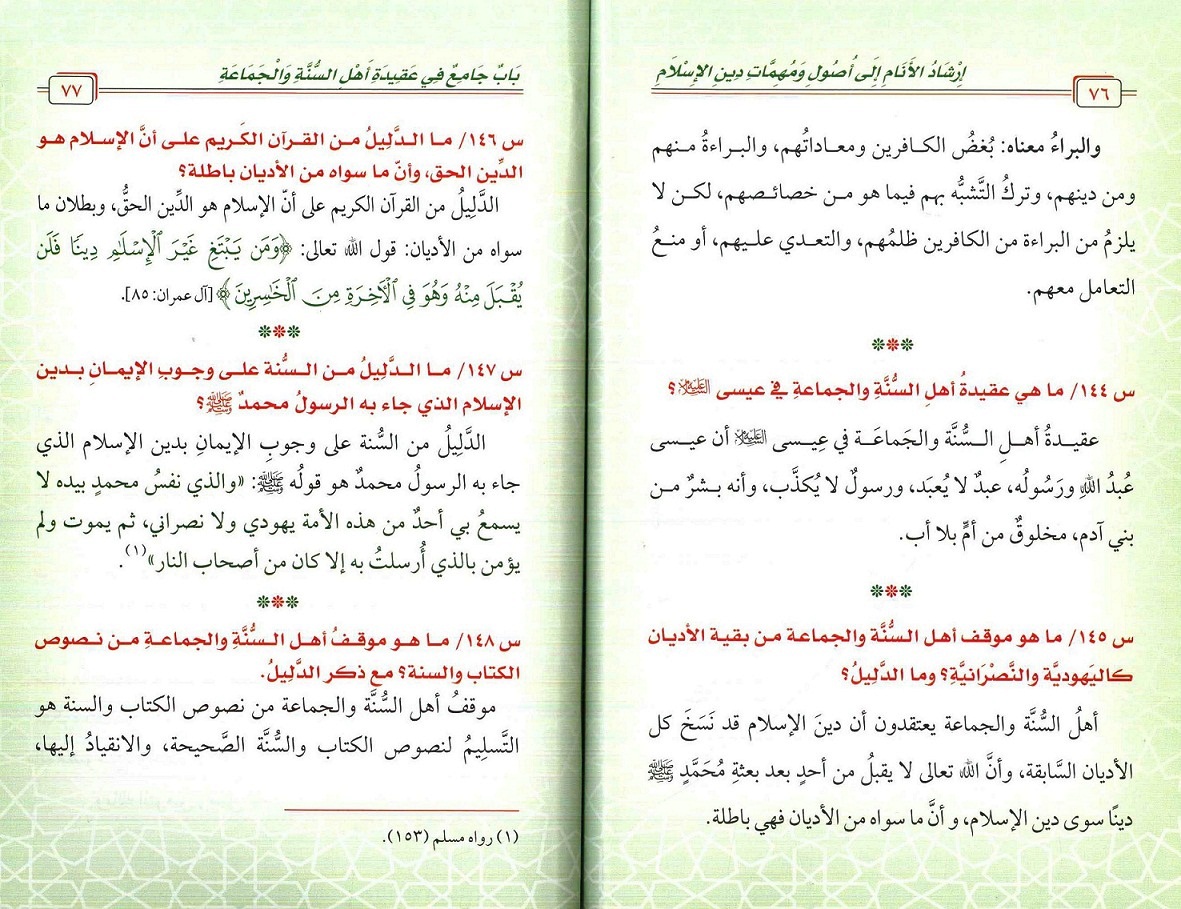 إِرْشَادُ الأَنَامِ إِلَى أُصُولِ وَمُهِمَّاتِ دِينِ الإِسْلَامِ
٧٦
والبراءُ معناه: بُغضُ الكـافرين ومعـاداتُهم، والبـراءةُ مـنهم
ومن دينهم، وتركُ التَّشبُّه بهم فيما هو مـن خصائـصهم، لكـن لا
يلزمُ من البراءة من الكافرين ظلمُهم، والتعـدي علـيهم، أو منـعُ
التعامل معهم.
***
س ١٤٤/ ما هي عقيدةُ أهلِ السُّنَّةِ والجماعةِ في عيسى ﷤؟
عقيـدةُ أهـلِ الـسُّـنَّة والجَماعَـة في عِيـسى ﷤ أن عيـسى
عُبدُ اللهِ ورَسُولُه، عبدٌ لا يُعبَد، ورسولٌ لا يُكذَّب، وأنه بشرٌ مـن
بني آدم، مخلوقٌ من أمٍّ بلا أب.
***
س ١٤٥/ ما هو موقف أهل السُّنَّة والجماعة من بقية الأديان
كاليَهوديَّة والنَّصْرَانيَّةِ؟ وما الدَّلِيلُ؟
أهلُ السُّنَّة والجماعة يعتقدون أن دينَ الإسلام قد نَسَخَ كل
الأديان السَّابقة، وأنَّ الله تعالى لا يقبلُ من أحدٍ بعد بعثةِ مُحَمَّدٍ ﷺ
دينًا سوى دين الإسلام، و أنَّ ما سواه من الأديان فهي باطلة.
بَابٌ جَامِعٌ فِي عَقِيدَةِ أَهْلِ السُّنَّةِ وَالْجَمَاعَةِ
٧٧
س ١٤٦/ مـا الـدَّلِيلُ مـن القـرآن الكَـريم علـى أنَّ الإسـلام هـو
الدِّين الحق، وأنّ ما سواه من الأديان باطلة؟
الدَّلِيلُ من القرآن الكريم على أنّ الإسلام هو الدِّين الحقُّ، وبطلان ما
سواه من الأديان: قول الله تعالى: ﴿وَمَن يَبْتَغِ غَيْرَ ٱلْإِسْلَٰمِ دِينًا فَلَن
يُقْبَلَ مِنْهُ وَهُوَ فِى ٱلْءَاخِرَةِ مِنَ ٱلْخَٰسِرِينَ﴾ [آل عمران: ٨٥].
***
س ١٤٧/ مـا الـدَّلِيلُ مـن الـسُّنة علـى وجـوبِ الإيمـانِ بـدين
الإسلام الذي جاء به الرسولُ محمدٌ ﷺ؟
الدَّلِيلُ من السُّنة على وجوبِ الإيمانِ بدين الإسلام الذي
جاء به الرسولُ محمدٌ هو قولُه ﷺ: «والذي نفسُ محمدٍ بيده لا
يسمعُ بي أحدٌ من هذه الأمة يهودي ولا نصراني، ثم يموت ولم
يؤمن بالذي أُرسلتُ به إلا كان من أصحاب النار»(١).
***
س ١٤٨/ مـا هـو موقـفُ أهـل الـسُّنَّةِ والجماعـةِ مـن نـصوص
الكتاب والسنة؟ مع ذكر الدَّلِيلُ.
موقفُ أهل السُّنَّة والجماعة من نصوص الكتاب والسنة هو
التَّسلِيمُ لنصوص الكتاب والسُّنَّة الصَّحيحة، والانقيادُ إليها،
(١) رواه مسلم (١٥٣).